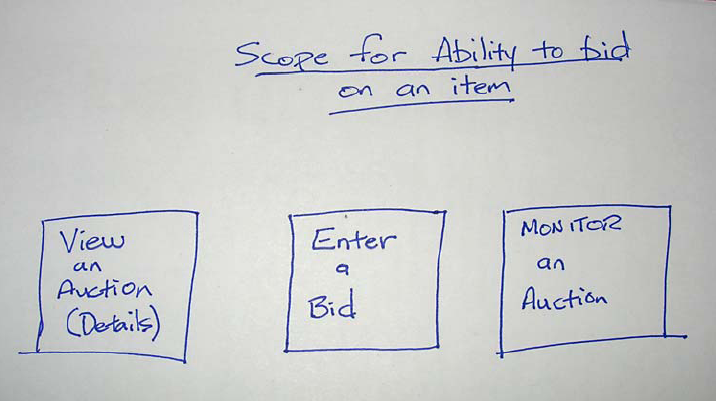 Scope for Ability to bid
on an item
View
an
Auction
(Details)
Enter
a
Bid
MONITOR
an
Auction